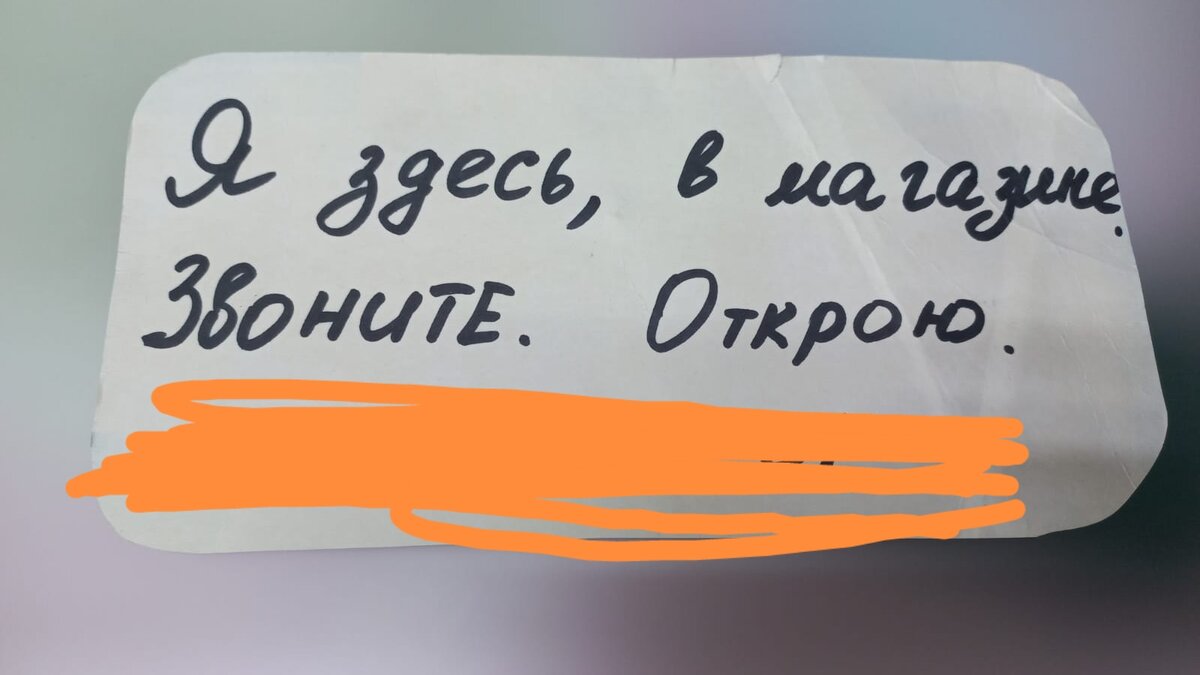 Я здесь, в магазине.
Звоните. Открою.